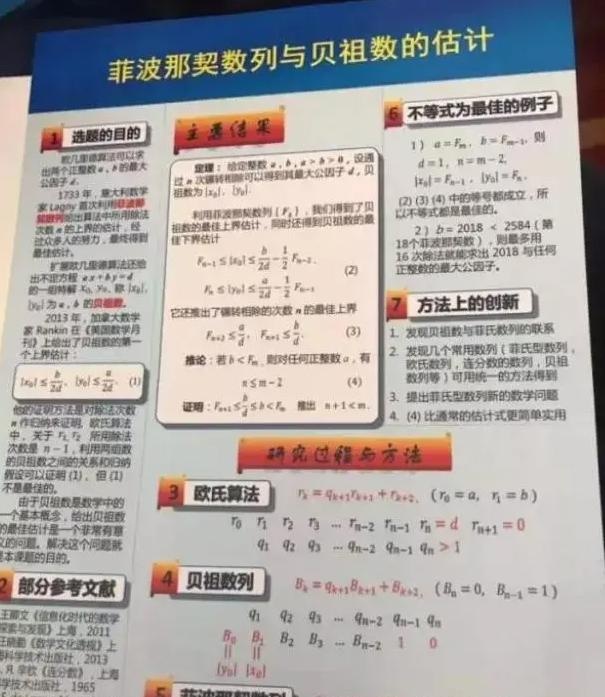 菲波那契数列与贝祖数的估计
1 选题的目的
欧几里德算法可以求
出两个正整数 a, b 的最大
公因子 d.
1733 年, 意大利数学
家 Lagny 首次利用菲波那
契数列给出算法中所用除法
次数 n 的上界的估计, 经
过众多人的努力, 最终得到
最佳估计.
扩展欧几里德算法还给
出不定方程 ax+by=d
的一组特解 x₀, y₀, 称 |x₀|,
|y₀| 为 a, b 的贝祖数.
2013 年, 加拿大数学
家 Rankin 在《美国数学月
刊》上给出了贝祖数的第一
个上界估计:
|x₀| ≤ b/2d, |y₀| ≤ a/2d. (1)
他的证明方法是对除法次数
n 作归纳来证明, 欧氏算法
中, 关于 r₁, r₂ 所用除法
次数是 n − 1, 利用两组数
的贝祖数之间的关系和归纳
假设可以证明 (1), 但 (1)
不是最佳的.
由于贝祖数是数学中的
一个基本概念, 给出贝祖数
的最佳估计是一个非常有意
义的问题. 解决这个问题就
是本课题的目的.
2 部分参考文献
王卿文《信息化时代的数学
探索与发现》上海, 2011
《数学文化透视》上
海科学技术出版社, 2013
《连分数》, 上海
科学技术出版社, 1965
主要结果
定理: 给定整数 a, b, a > b > 0, 设通
过 n 次辗转相除可以得到其最大公因子 d, 贝
祖数为 |x₀|, |y₀|.
利用菲波那契数列 {Fᵢ}, 我们得到了贝
祖数的最佳上界估计, 同时还得到贝祖数的最
佳下界估计
Fₙ₋₁ ≤ |x₀| ≤ b/2d − 1/2 Fₙ₋₂,
(2)
Fₙ ≤ |y₀| ≤ a/2d − 1/2 Fₙ₋₁
它还推出了辗转相除的次数 n 的最佳上界
Fₙ₊₂ ≤ a/d, Fₙ₊₁ ≤ b/d. (3)
推论: 若 b < Fₘ, 则对任何正整数 a, 有
n ≤ m − 2 (4)
证明: Fₙ₊₁ ≤ b/d ≤ b < Fₘ 推出 n + 1 < m.
6 不等式为最佳的例子
1) a = Fₘ, b = Fₘ₋₁, 则
d = 1, n = m − 2,
|x₀| = Fₙ₋₁, |y₀| = Fₙ.
(2) (3) (4) 中的等号都成立, 所
以不等式都是最佳的.
2) b = 2018 < 2584 (第
18个菲波那契数), 则最多用
16 次除法就能求出 2018 与任何
正整数的最大公因子.
7 方法上的创新
1. 发现贝祖数与菲氏数列的联系
2. 发现几个常用数列 (菲氏型数列,
欧氏数列, 连分数的数列, 贝祖
数列等) 可用统一的方法得到
3. 提出菲氏型数列新的数学问题
4. (4) 比通常的估计式更简单实用
研究过程与方法
3 欧氏算法 rₖ = qₖ₊₁rₖ₊₁ + rₖ₊₂, (r₀ = a, r₁ = b)
r₀ r₁ r₂ r₃ … rₙ₋₂ rₙ₋₁ rₙ = d rₙ₊₁ = 0
q₁ q₂ q₃ … qₙ₋₂ qₙ₋₁ qₙ > 1
4 贝祖数列 Bₖ = qₖ₊₁Bₖ₊₁ + Bₖ₊₂, (Bₙ = 0, Bₙ₋₁ = 1)
q₁ q₂ q₃ … qₙ₋₂ qₙ₋₁ qₙ
B₀ B₁ B₂ B₃ … Bₙ₋₂ 1 0
|| ||
|y₀| |x₀|
5 菲波那契数列